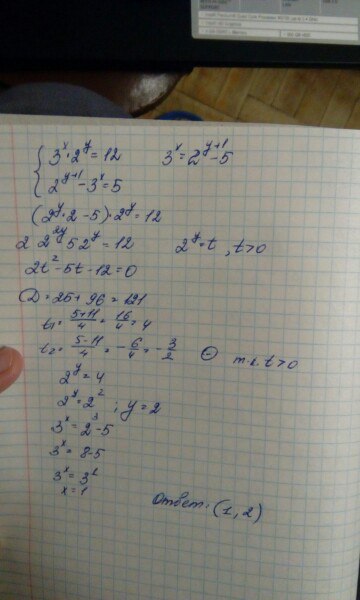 3^x · 2^y = 12    3^x = 2^{y+1} - 5
2^{y+1} - 3^x = 5
(2^y · 2 - 5) · 2^y = 12
2 2^{2y} 5 2^y = 12    2^y = t, t > 0
2t² - 5t - 12 = 0
D = 25 + 96 = 121
t₁ = (5+11)/4 = 16/4 = 4
t₂ = (5-11)/4 = -6/4 = -3/2    ⊖ т.к. t > 0
2^y = 4
2^y = 2² ; y = 2
3^x = 2³ - 5
3^x = 8-5
3^x = 3¹
x = 1
Ответ: (1, 2)